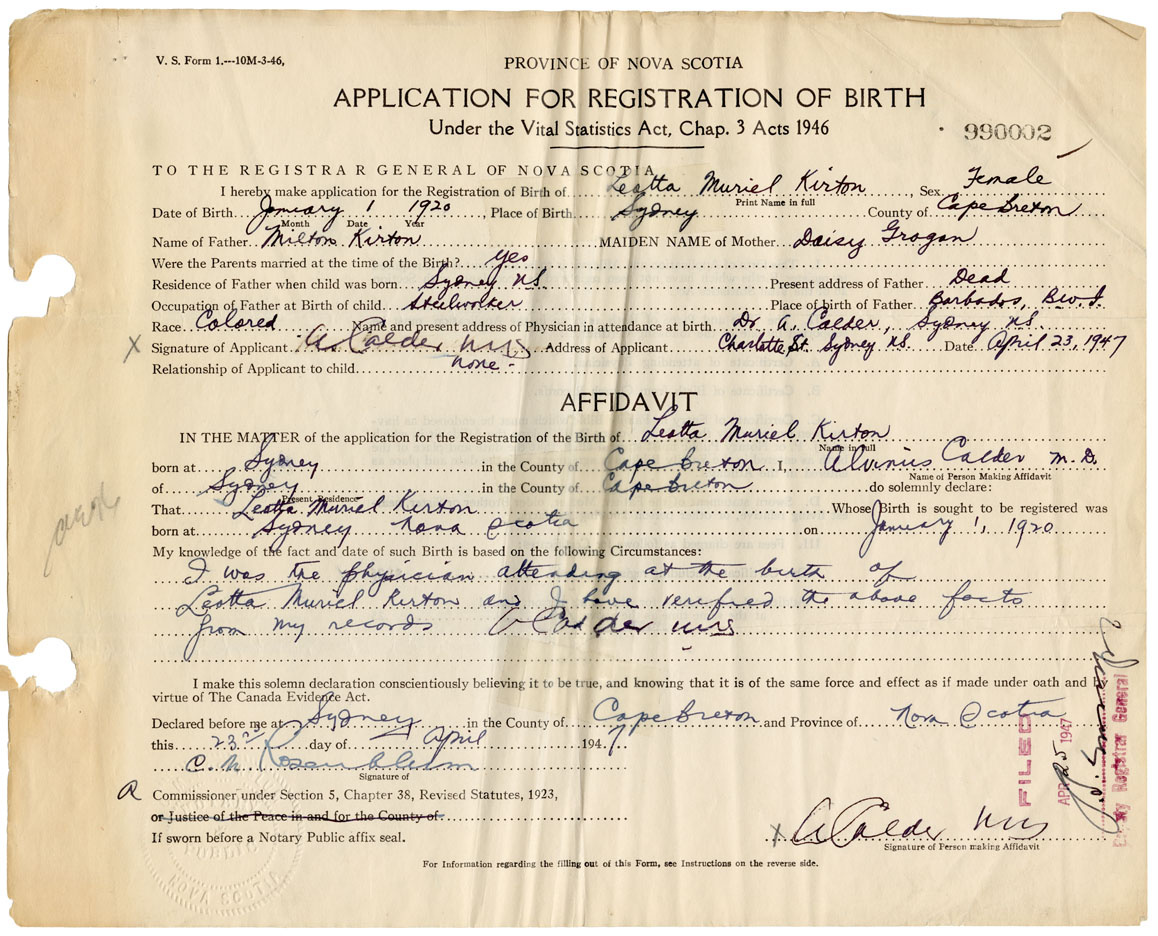 V. S. Form 1.---10M-3-46,
PROVINCE OF NOVA SCOTIA
APPLICATION FOR REGISTRATION OF BIRTH
Under the Vital Statistics Act, Chap. 3 Acts 1946
990002
TO THE REGISTRAR GENERAL OF NOVA SCOTIA
I hereby make application for the Registration of Birth of Leotta Muriel Kirton Sex Female
Print Name in full
Date of Birth January 1 1920, Place of Birth Sydney County of Cape Breton
Month Date Year
Name of Father Milton Kirton MAIDEN NAME of Mother Daisy Grogan
Were the Parents married at the time of the Birth? Yes
Residence of Father when child was born Sydney NS. Present address of Father Dead
Occupation of Father at Birth of child Steelworker Place of birth of Father Barbados, B.W.I.
Race Colored Name and present address of Physician in attendance at birth Dr. A. Calder, Sydney NS.
X Signature of Applicant A Calder MD Address of Applicant Charlotte St. Sydney NS. Date April 23, 1947
Relationship of Applicant to child none -
AFFIDAVIT
IN THE MATTER of the application for the Registration of the Birth of Leotta Muriel Kirton
Name in full
born at Sydney in the County of Cape Breton I, Alvinus Calder M.D.
Name of Person Making Affidavit
of Sydney in the County of Cape Breton do solemnly declare:
Present Residence
That Leotta Muriel Kirton Whose Birth is sought to be registered was
born at Sydney Nova Scotia on January 1, 1920
My knowledge of the fact and date of such Birth is based on the following Circumstances:
I was the physician attending at the birth of
Leotta Muriel Kirton and I have verified the above facts
from my records A Calder MD
I make this solemn declaration conscientiously believing it to be true, and knowing that it is of the same force and effect as if made under oath and
virtue of The Canada Evidence Act.
Declared before me at Sydney in the County of Cape Breton and Province of Nova Scotia
this 23rd day of April 1947
C. M Rosenblum
Signature of
Commissioner under Section 5, Chapter 38, Revised Statutes, 1923,
or Justice of the Peace in and for the County of
If sworn before a Notary Public affix seal.
X A Calder MD
Signature of Person making Affidavit
For Information regarding the filling out of this Form, see Instructions on the reverse side.
FILED
APR 25 1947
Deputy Registrar General
NOVA SCOTIA